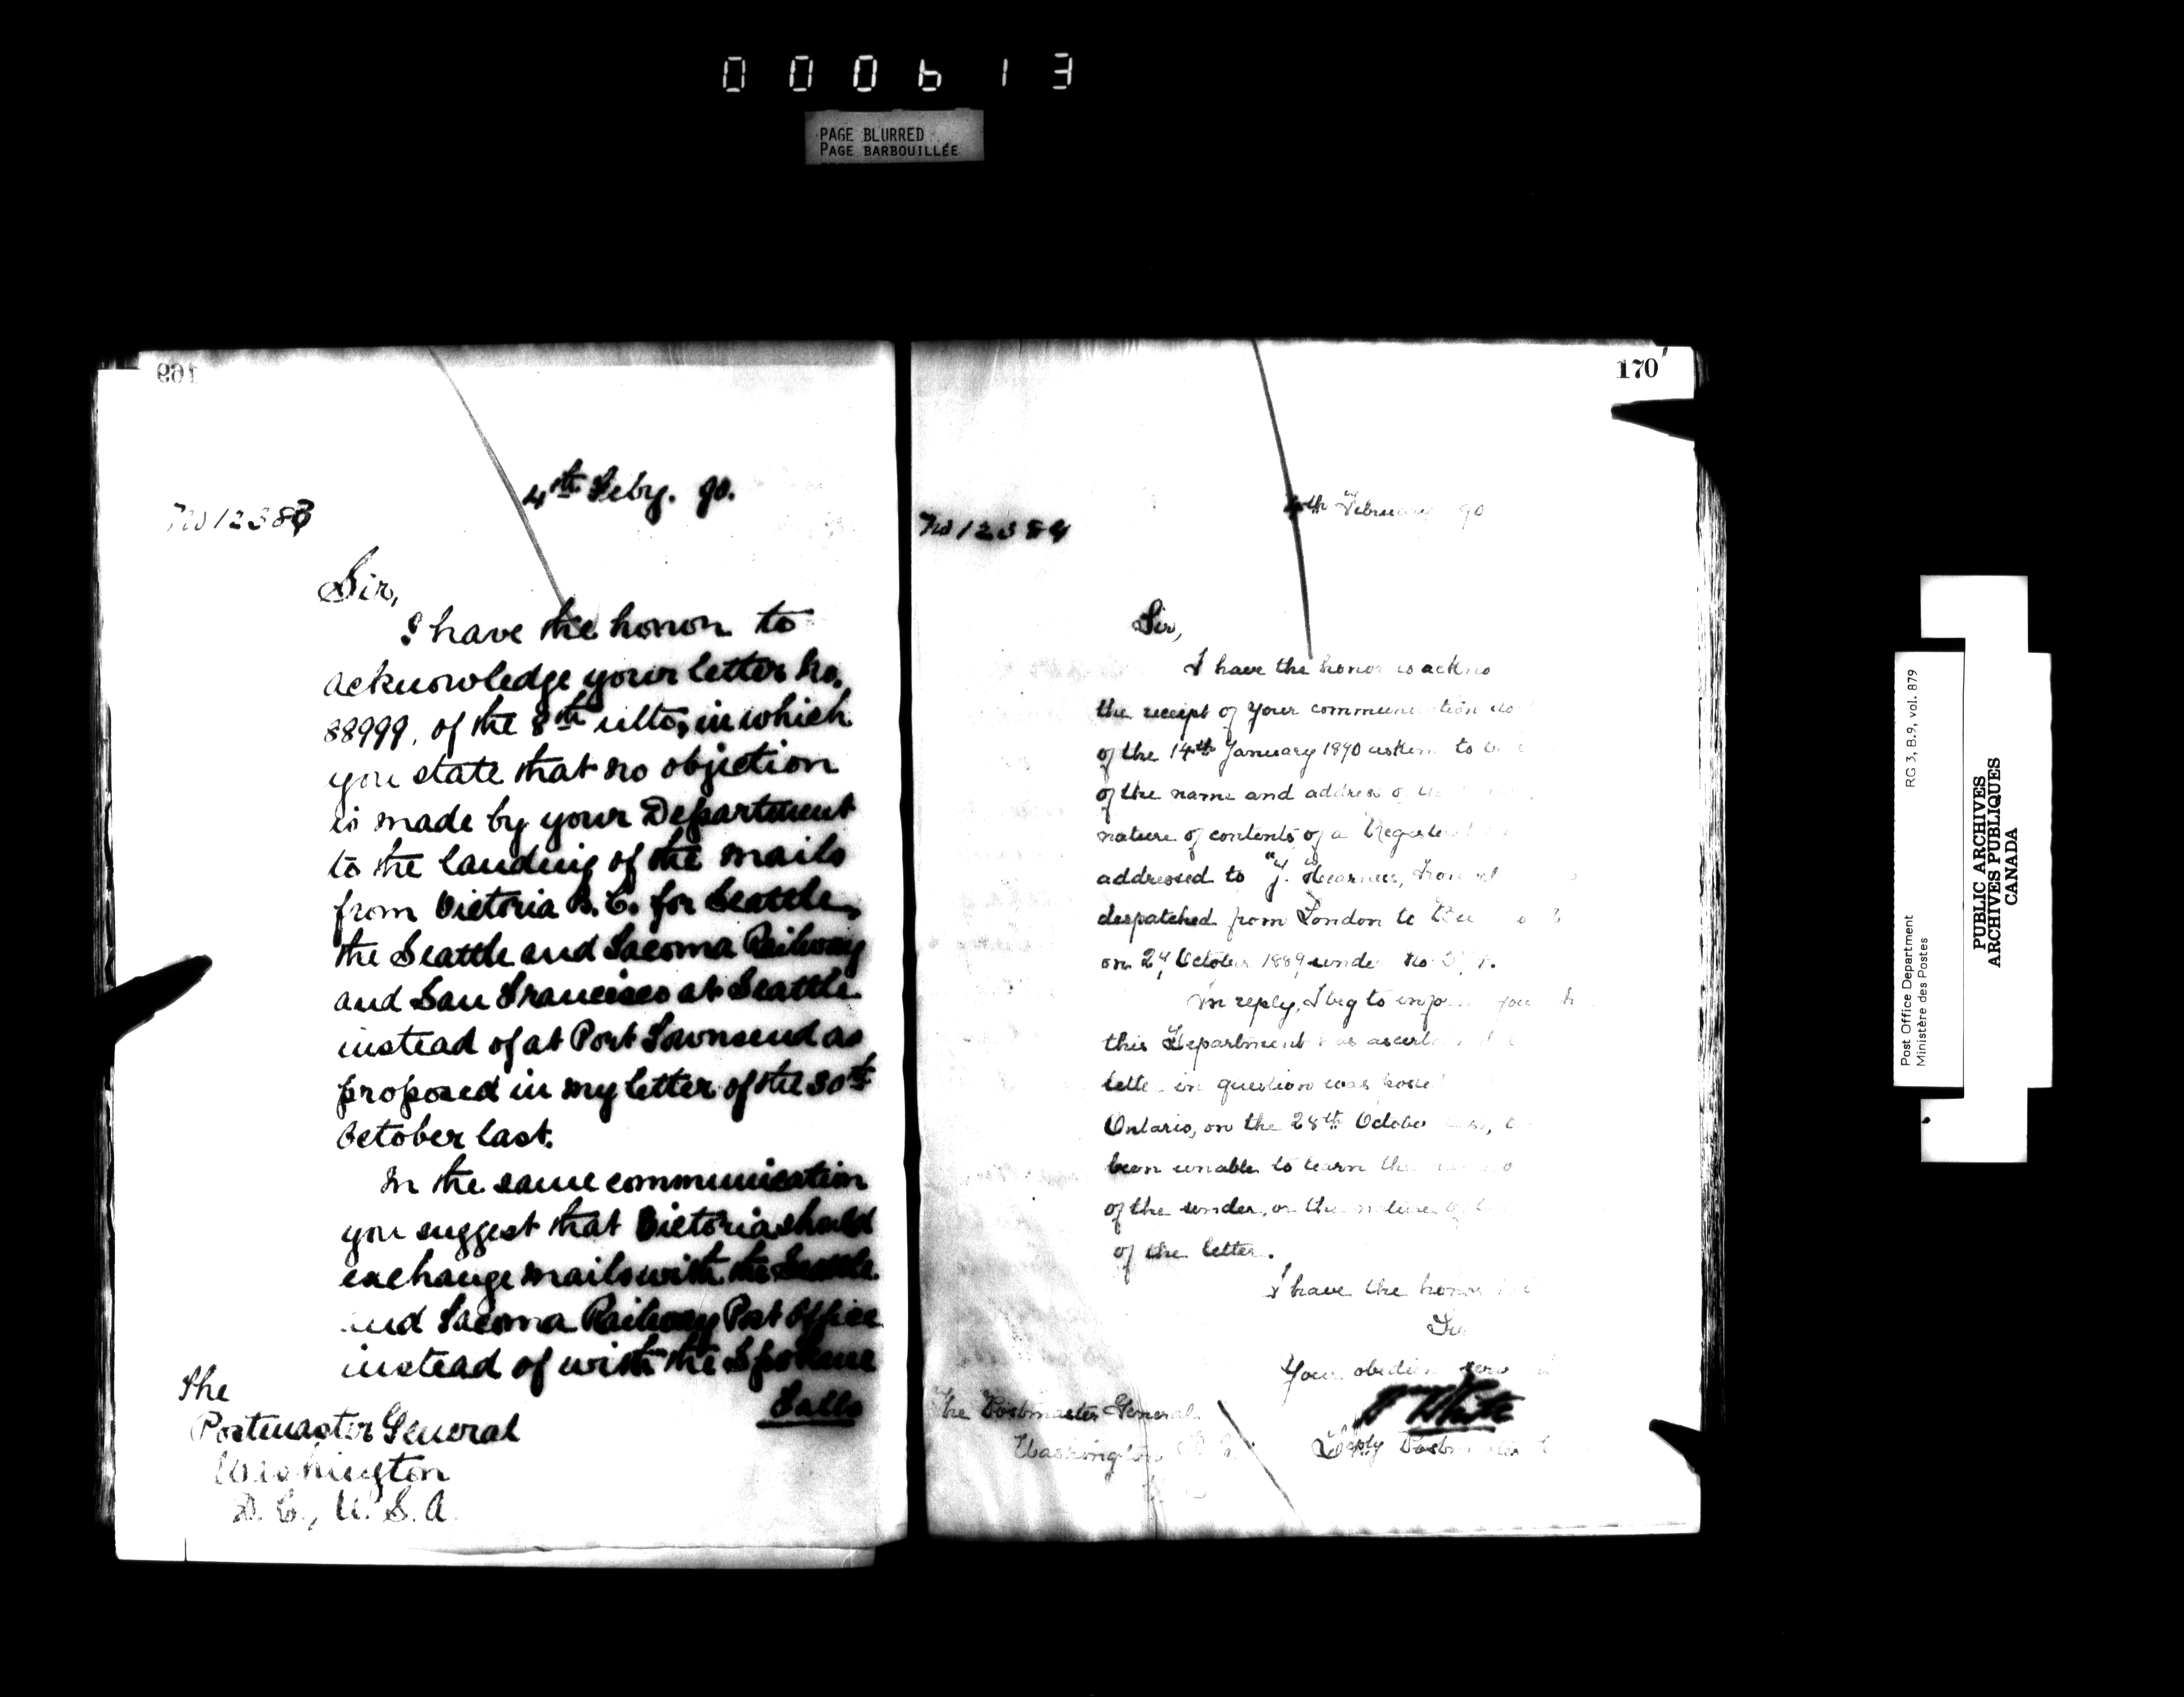 000613
PAGE BLURRED
PAGE BARBOUILLÉE
169
4th Feby. 90.
No 12383
Sir,
I have the honor to
acknowledge your letter No.
88999, of the 8th ulto, in which
you state that no objection
is made by your Department
to the landing of the mails
from Victoria B.C. for Seattle,
the Seattle and Tacoma Railway
and San Francisco at Seattle
instead of at Port Townsend as
proposed in my letter of the 30th
October last.
In the same communication
you suggest that Victoria should
exchange mails with the Seattle
and Tacoma Railway Post Office
instead of with the Spokane
Falls
The
Postmaster General
Washington
D.C., U.S.A.
170
4th February 90
No 12384
Sir,
I have the honor to ackno
the receipt of your communication No
of the 14th January 1890 asking to
of the name and address of
nature of contents of a Registe
addressed to "J.
despatched from London to
on 29 October 1889 under No.
In reply, I beg to inform you
this Department has ascert
letter in question was
Ontario, on the 28th October
been unable to learn the
of the sender, or the nature of
of the letter.
I have the honor
Sir
Your obedien serv
White
Deputy Postmaster
The Postmaster General
Washington
RG 3, B.9, vol. 879
Post Office Department
Ministère des Postes
PUBLIC ARCHIVES
ARCHIVES PUBLIQUES
CANADA